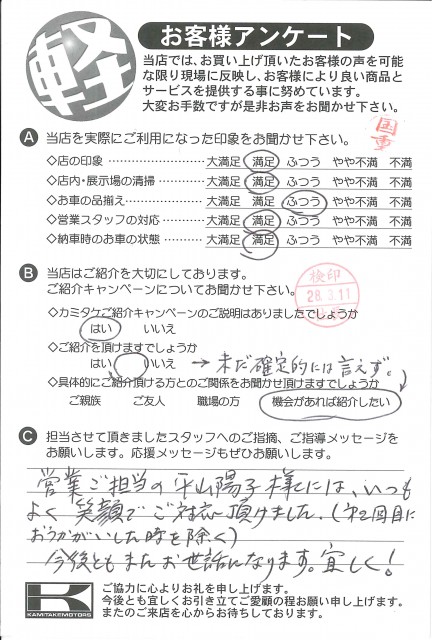 軽
お客様アンケート
当店では、お買い上げ頂いたお客様の声を可能
な限り現場に反映し、お客様により良い商品と
サービスを提供する事に努めています。
大変お手数ですが是非お声をお聞かせ下さい。
A 当店を実際にご利用になった印象をお聞かせ下さい。
国重
◇店の印象 ………………… 大満足 満足 ふつう やや不満 不満
◇店内・展示場の清掃 ………… 大満足 満足 ふつう やや不満 不満
◇お車の品揃え ……………… 大満足 満足 ふつう やや不満 不満
◇営業スタッフの対応 ………… 大満足 満足 ふつう やや不満 不満
◇納車時のお車の状態 ………… 大満足 満足 ふつう やや不満 不満
B 当店はご紹介を大切にしております。
ご紹介キャンペーンについてお聞かせ下さい。
検印
28.3.11
◇カミタケご紹介キャンペーンのご説明はありましたでしょうか
はい いいえ
◇ご紹介を頂けますでしょうか
はい いいえ → 未だ確定的には言えず。
◇具体的にご紹介頂ける方とのご関係をお聞かせ頂けますでしょうか
ご親族 ご友人 職場の方 機会があれば紹介したい
C 担当させて頂きましたスタッフへのご指摘、ご指導メッセージを
お願いします。応援メッセージもぜひお願いします。
営業ご担当の平山陽子様には、いつも
よく笑顔でご対応頂けました。(才2回目に
おうかがいした時を除く)
今後ともまたお世話になります。宜しく!
K
KAMITAKEMOTORS
ご協力に心よりお礼を申し上げます。
今後とも宜しくお引き立てご愛顧の程お願い申し上げます。
またのご来店を心からお待ちしております。